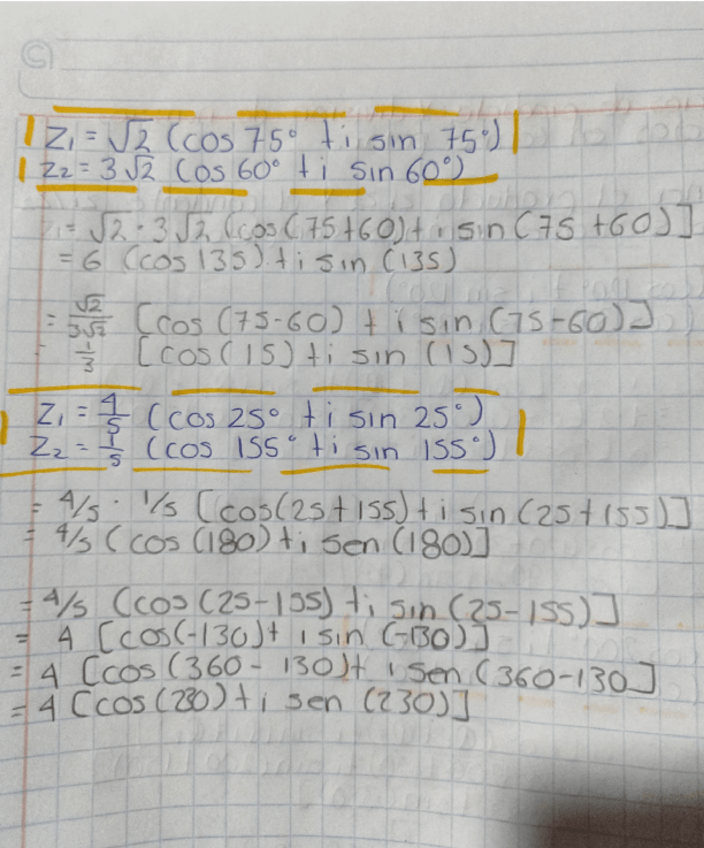 Z₁ = √2 (cos 75° + i sin 75°)
Z₂ = 3√2 (cos 60° + i sin 60°)
= √2 · 3√2 (cos (75+60) + i sin (75+60)]
= 6 (cos 135) + i sin (135)
= √2/3√2 [cos (75-60) + i sin (75-60)]
1/3 [cos (15) + i sin (15)]
Z₁ = 4/5 (cos 25° + i sin 25°)
Z₂ = 1/5 (cos 155° + i sin 155°)
= 4/5 · 1/5 [cos(25+155) + i sin (25+155)]
= 4/5 (cos (180) + i sen (180)]
= 4/5 (cos (25-155) + i sin (25-155)]
= 4 [cos(-130) + i sin (-130)]
= 4 [cos (360 - 130) + i sen (360-130]
= 4 [cos (230) + i sen (230)]